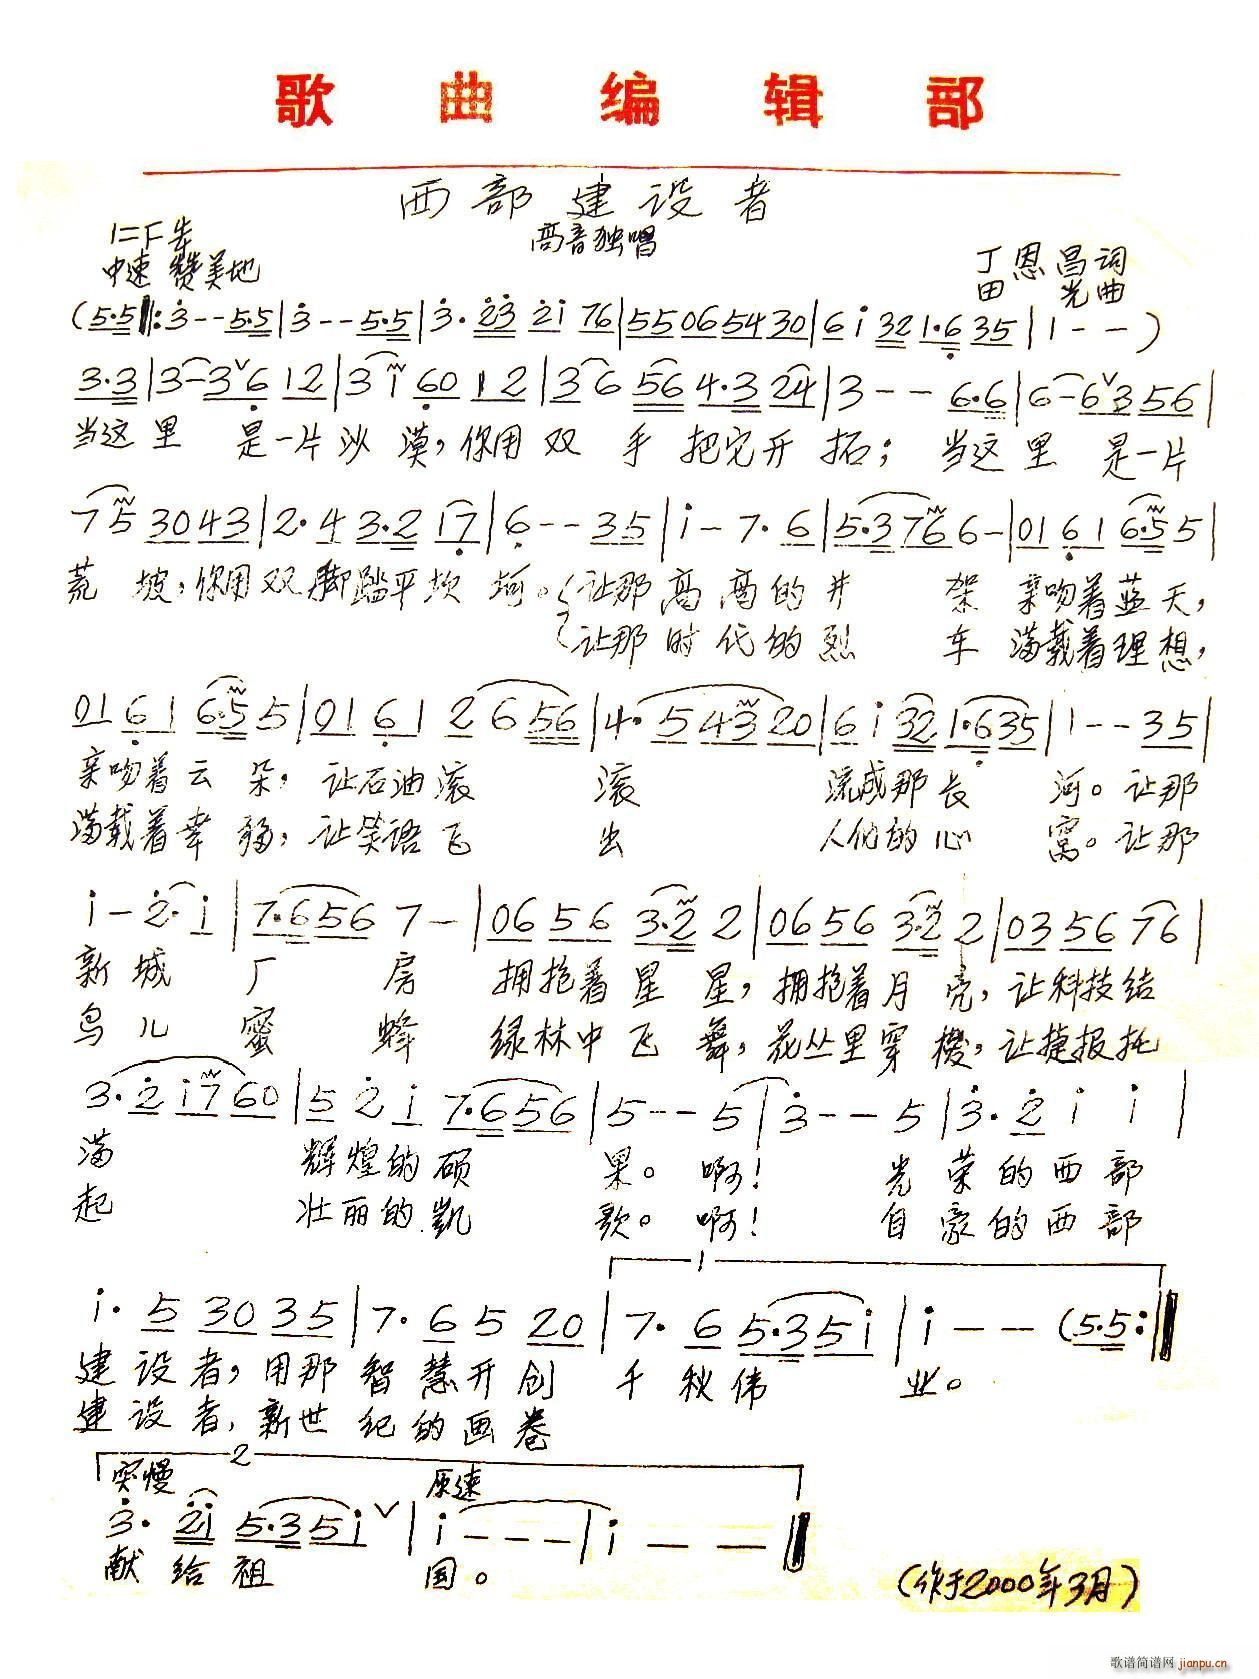 歌曲编辑部
西部建设者
高音独唱
1=F 4/4
中速 赞美地
丁恩昌词
田光曲
(5·5‖:3--5·5|3--5·5|3·23 21 76|55065430|6 i 32 1·6 35|1--)
3·3|3-3 6 12|3 i 60 12|3 6 56 4·3 24|3--6·6|6-6 3 56|
当这里 是一片沙漠，你用双 手 把它开 拓；当这里 是一片
75 3043|2·4 3·2 17|6--35|i-7·6|5·3 76 6-|01 61 6·5 5|
荒坡，你用双脚踏平坎坷。让那高高的井 架 亲吻着蓝天，
让那时代的烈 车 满载着理想，
01 61 6·5 5|01 61 2 6 56|4·5 43 20|6 i 32 1·6 35|1--35|
亲吻着云朵，让石油滚 滚 流成那长 河。让那
满载着幸福，让笑语飞 出 人们的心 窝。让那
i-2·i|7·6 56 7-|06 56 3·2 2|06 56 3·2 2|03 56 76|
新城厂 房 拥抱着星星，拥抱着月亮，让科技结
鸟儿蜜 蜂 绿林中飞舞，花丛里穿梭，让捷报托
3·2 i7 60|5 2 i 7·6 56|5--5|3--5|3·2 i i|
满 辉煌的硕 果。啊！ 光荣的西部
起 壮丽的凯 歌。啊！ 自豪的西部
1
i·5 30 35|7·6 5 20|7·6 5·3 5i|i--(5·5:‖
建设者，用那智慧开创 千秋伟 业。
建设者，新世纪的画卷
2
突慢 原速
3·2i 5·3 5i|i---|i--‖
献给祖 国。
(作于2000年3月)
歌谱简谱网 jianpu.cn